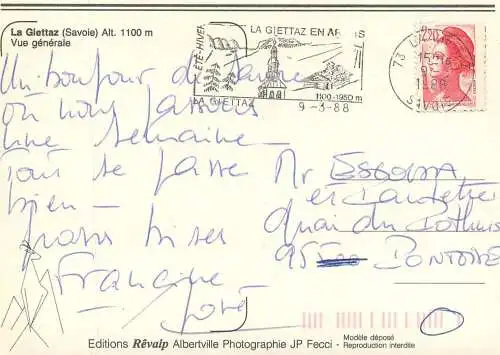 La Giettaz (Savoie) Alt. 1100 m
Vue générale
ÉTÉ-HIVER
LA GIETTAZ EN ARAVIS
LA GIETTAZ
1100-1950 m
9-3-88
73
15H
9-3
1988
2,20
Un bonjour de
où nous passons
une semaine
Tout se passe
bien -
gros bises
Francine
José
Mr
et
Quai du Pothuis
95 PONTOISE
Editions Rêvalp Albertville Photographie JP Fecci
Modèle déposé
Reproduction interdite